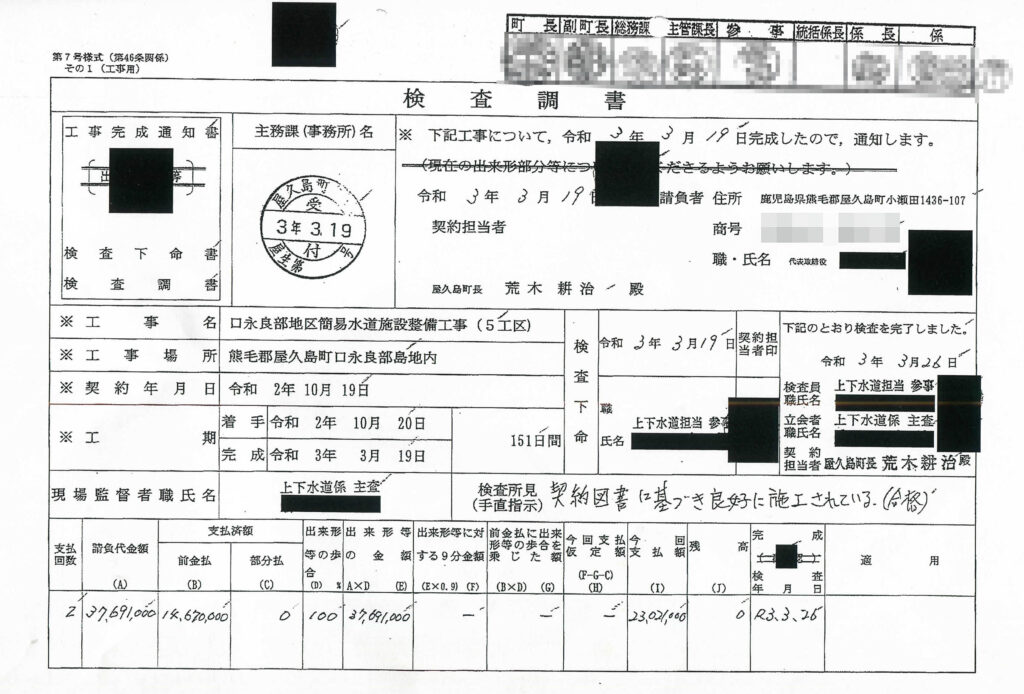 第7号様式(第46条関係)
その1(工事用)
町長 副町長 総務課 主管課長 参事 統括係長 係長 係
検査調書
工事完成通知書
出 等
検査下命書
検査調書
主務課(事務所)名
屋久島町
受
3年 3.19
付
屋生第 号
※ 下記工事について,令和 3年 3月 19日完成したので,通知します。
(現在の出来形部分等につ くださるようお願いします。)
令和 3年 3月 19 請負者 住所 鹿児島県熊毛郡屋久島町小瀬田1436-107
契約担当者 商号
職・氏名 代表取締役
屋久島町長 荒木耕治 殿
※ 工事名 口永良部地区簡易水道施設整備工事(5工区)
※ 工事場所 熊毛郡屋久島町口永良部島地内
※ 契約年月日 令和 2年 10月 19日
※ 工期 着手 令和 2年 10月 20日
完成 令和 3年 3月 19日
151日間
検査下命
令和 3年 3月 19日 契約担当者印
職 上下水道担当 参事
氏名
下記のとおり検査を完了しました。
令和 3年 3月 26日
検査員職氏名 上下水道担当 参事
立会者職氏名 上下水道係 主査
契約担当者 屋久島町長 荒木耕治 殿
現場監督者職氏名 上下水道係 主査
検査所見(手直指示) 契約図書に基づき良好に施工されている。(合格)
支払回数 請負代金額 (A) 支払済額 前金払 (B) 部分払 (C) 出来形等の歩合 (D) % 出来形等の金額 A×D (E) 出来形等に対する9分金額 (E×0.9) (F) 前金払に出来形等の歩合を乗じた額 (B×D) (G) 今回支払仮定額 (F-G-C) (H) 今回支払額 (I) 残高 (J) 完成 検査年月日 適用
2 37,691,000 14,670,000 0 100 37,691,000 — — — 23,021,000 0 R3.3.26